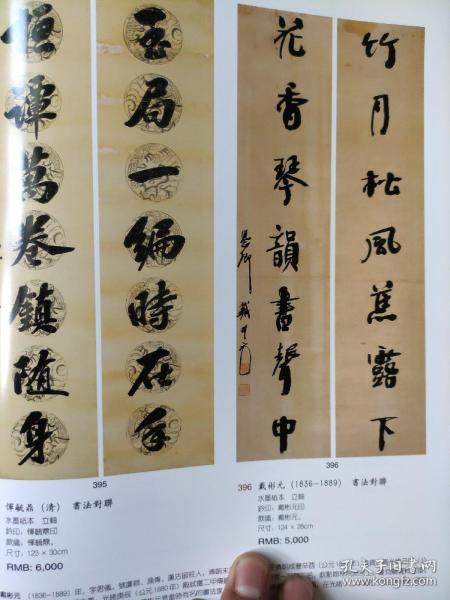 玉局一編時在手
萬卷鎮隨身
竹月松風蕉露下
花香琴韻書聲中
395
396
惲毓鼎（清） 書法對聯
水墨紙本 立軸
鈐印：惲毓鼎印
款識：惲毓鼎。
尺寸：123 × 30cm
RMB: 6,000
396 戴彬元（1836-1889） 書法對聯
水墨紙本 立軸
鈐印：戴彬元印
款識：戴彬元。
尺寸：124 × 28cm
RMB: 5,000
戴彬元（1836-1889）年，字君儀，號虞卿
孔夫子旧书网